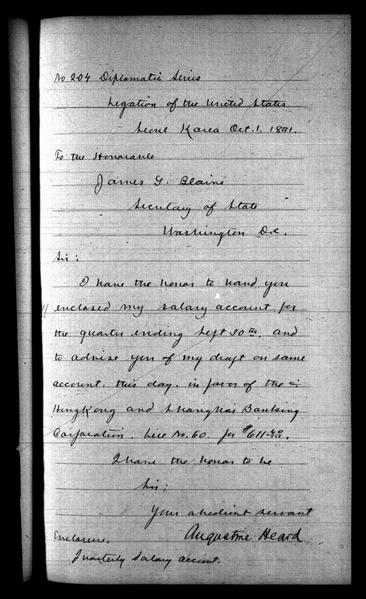 No 204 Diplomatic Series
Legation of the United States
Seoul Korea Oct. 1. 1891.
To the Honorable
James G. Blaine
Secretary of State
Washington D.C.
Sir:
I have the honor to hand you
enclosed my salary account for
the quarter ending Sept 30th. and
to advise you of my draft on same
account, this day, in favor of the
HongKong and Shanghai Banking
Corporation. No. 60. for $611
I have the honor to be
Sir:
Your obedient servant
Augustine Heard
Enclosure.
Quarterly Salary account.